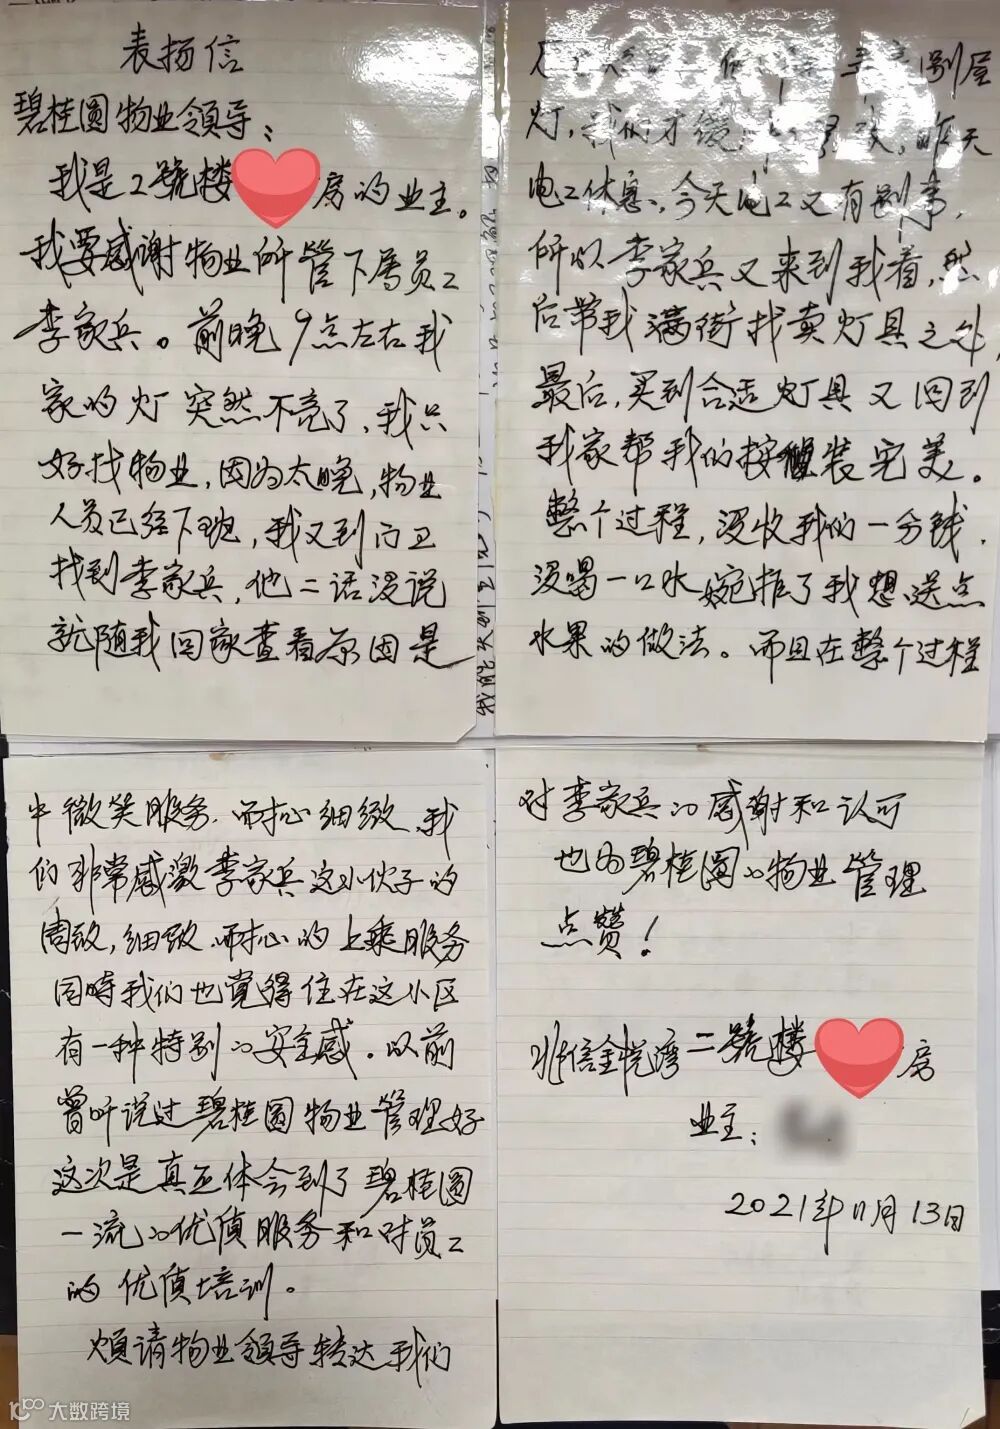 表扬信
碧桂圆物业领导：
我是2號楼房的业主。
我要感谢物业所管下属员工
李家兵。前晚9点左右我
家的灯突然不亮了,我只
好找物业,因为太晚,物业
人员已经下班,我又到门卫
找到李家兵,他二话没说
就随我回家查看原因是
别屋
灯,我们才缓,昨天
电工休息、今天电工又有别事,
所以李家兵又来到我看,然
后带我满街找卖灯具之处,
最后,买到合适灯具又回到
我家帮我们按装完美。
整个过程,没收我们一分钱,
没喝一口水婉拒了我想送点
水果的做法。而且在整个过程
中微笑服务,而扣心细致、我
们非常感激李家兵这小伙子的
周致,细致、而扣心的上乘服务
同時我们也覺得住在这小区
有一种特别的安全感。以前
曾听说过碧桂圆物业管理好
这次是真正体会到了碧桂圆
一流的优质服务和对员工
的优质培训。
烦请物业领导转达我们
对李家兵的感谢和认可
也为碧桂圆的物业管理
点赞!
兆信金悦湾二號楼房
业主:
2021年11月13日
大数跨境